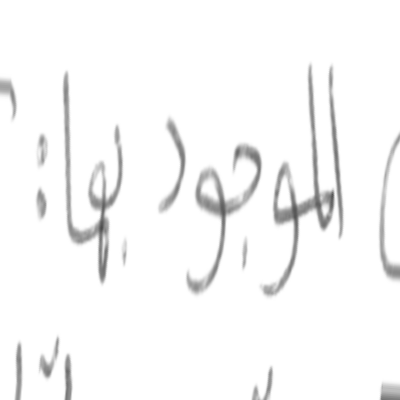 الموجود بها: